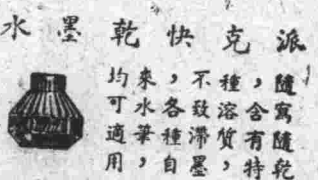 派克快乾墨水
隨寫隨乾
，含有特
種溶質，
不致滯墨
，各種自
來水筆，
均可適用